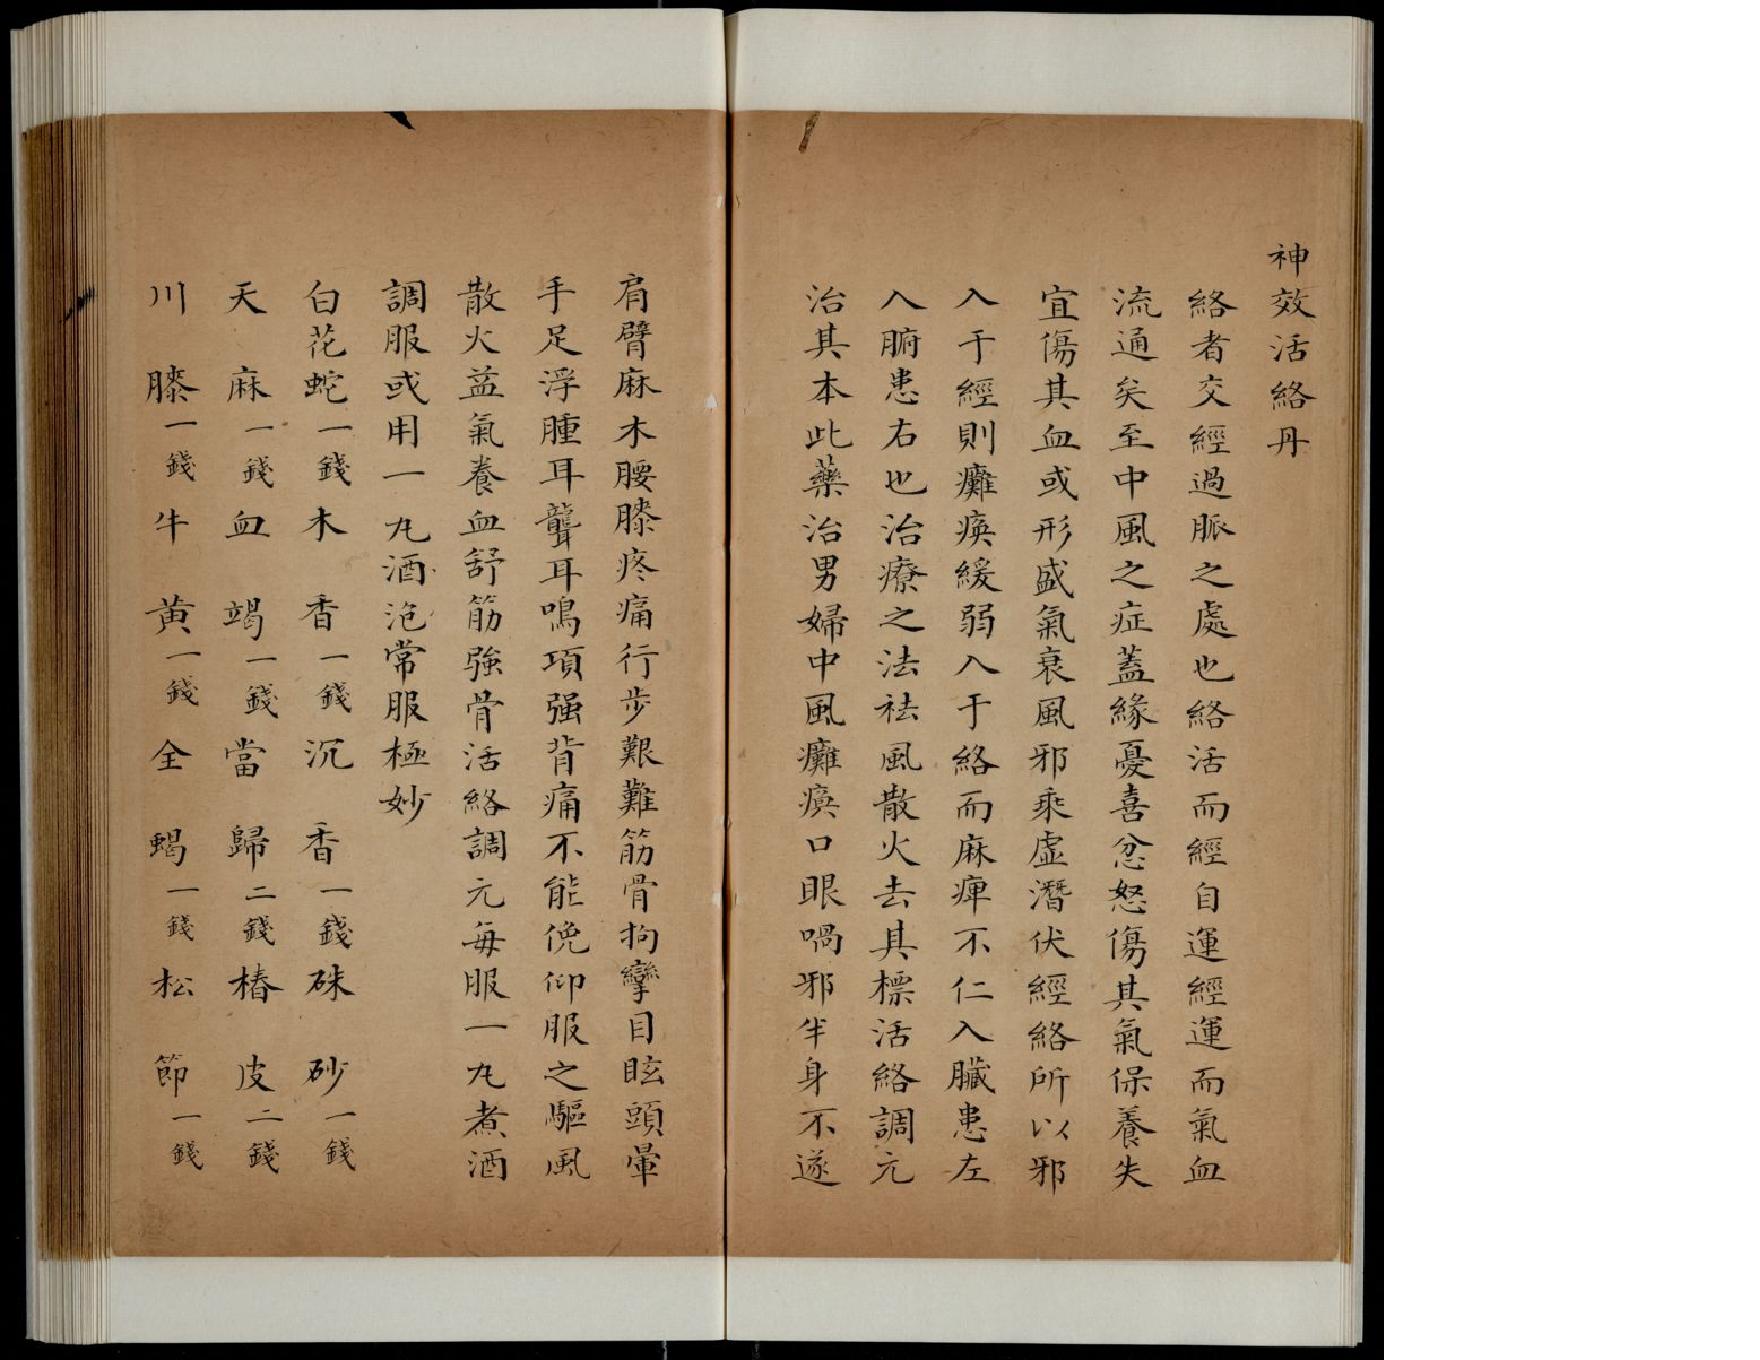 神效活絡丹
絡者交經過脈之處也絡活而經自運經運而氣血
流通矣至中風之症蓋緣憂喜忿怒傷其氣保養失
宜傷其血或形盛氣衰風邪乘虛潛伏經絡所以邪
入于經則癱瘓緩弱入于絡而麻痺不仁入臟患左
入腑患右也治療之法祛風散火去其標活絡調元
治其本此藥治男婦中風癱瘓口眼喎邪半身不遂
肩臂麻木腰膝疼痛行步艱難筋骨拘攣目眩頭暈
手足浮腫耳聾耳鳴項强背痛不能俛仰服之驅風
散火益氣養血舒筋強骨活絡調元每服一丸煮酒
調服或用一丸酒泡常服極妙
白花蛇一錢木香一錢沉香一錢硃砂一錢
天麻一錢血竭一錢當歸二錢椿皮二錢
川膝一錢牛黃一錢全蝎一錢松節一錢